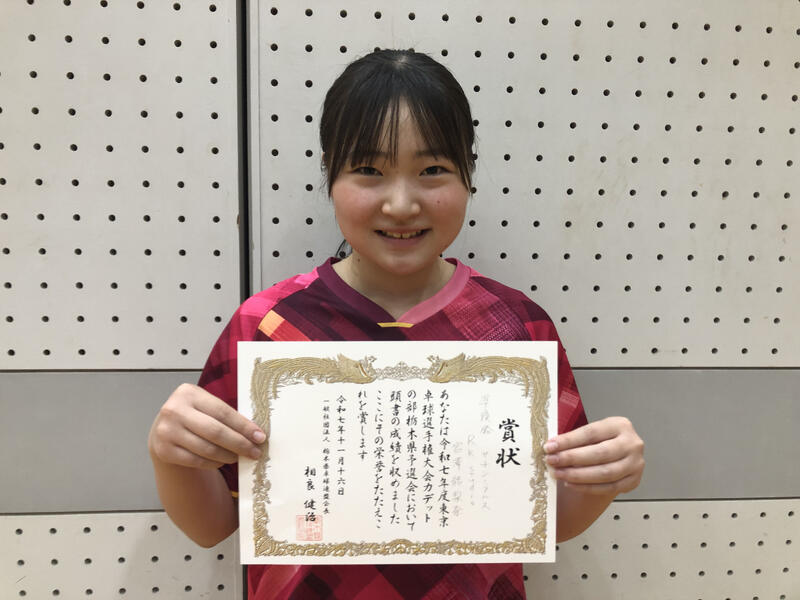 賞状
準優勝
あなたは令和七年度東京
卓球選手権大会カデット
の部栃木県予選会において
頭書の成績を収めました
ここにその栄誉をたたえこ
れを賞します
令和七年十一月十六日
一般社団法人 栃木県卓球連盟会長
相良 健治